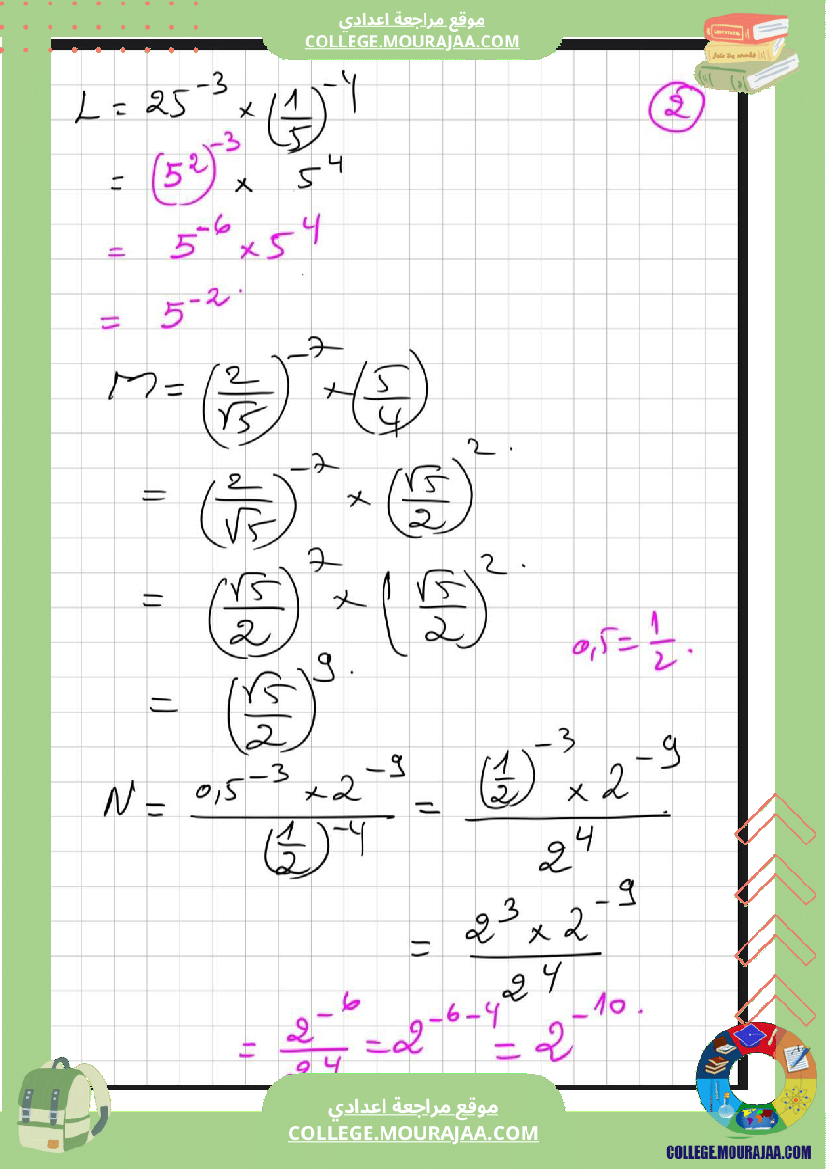 موقع مراجعة اعدادي
COLLEGE.MOURAJAA.COM
2
L = 25^-3 × (1/5)^-4
= (5^2)^-3 × 5^4
= 5^-6 × 5^4
= 5^-2.
M = (2/√5)^-7 × (5/4)
= (2/√5)^-7 × (√5/2)^2.
= (√5/2)^7 × (√5/2)^2.
0,5 = 1/2.
= (√5/2)^9.
N = (0,5^-3 × 2^-9)/((1/2)^-4) = ((1/2)^-3 × 2^-9)/(2^4)
= (2^3 × 2^-9)/(2^4)
= (2^-6)/(2^4) = 2^-6-4 = 2^-10.
موقع مراجعة اعدادي
COLLEGE.MOURAJAA.COM
COLLEGE.MOURAJAA.COM